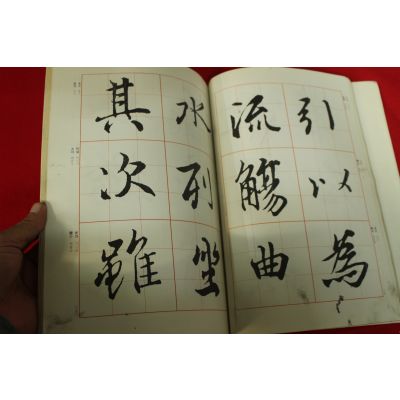 引以為
流觴曲
水列坐
其次雖